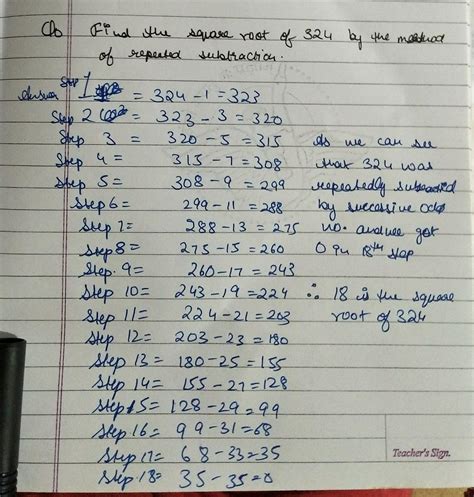 Q Find the square root of 324 by the method
of repeated subtraction.
Answer Step 1 = 324 - 1 = 323
Step 2 = 323 - 3 = 320
Step 3 = 320 - 5 = 315
Step 4 = 315 - 7 = 308
Step 5 = 308 - 9 = 299
Step 6 = 299 - 11 = 288
Step 7 = 288 - 13 = 275
Step 8 = 275 - 15 = 260
Step 9 = 260 - 17 = 243
Step 10 = 243 - 19 = 224
Step 11 = 224 - 21 = 203
Step 12 = 203 - 23 = 180
Step 13 = 180 - 25 = 155
Step 14 = 155 - 27 = 128
Step 15 = 128 - 29 = 99
Step 16 = 99 - 31 = 68
Step 17 = 68 - 33 = 35
Step 18 = 35 - 35 = 0
As we can see
that 324 was
repeatedly subtracted
by successive odd
no. and we got
0 in 18th step
∴ 18 is the square
root of 324
Teacher's Sign.